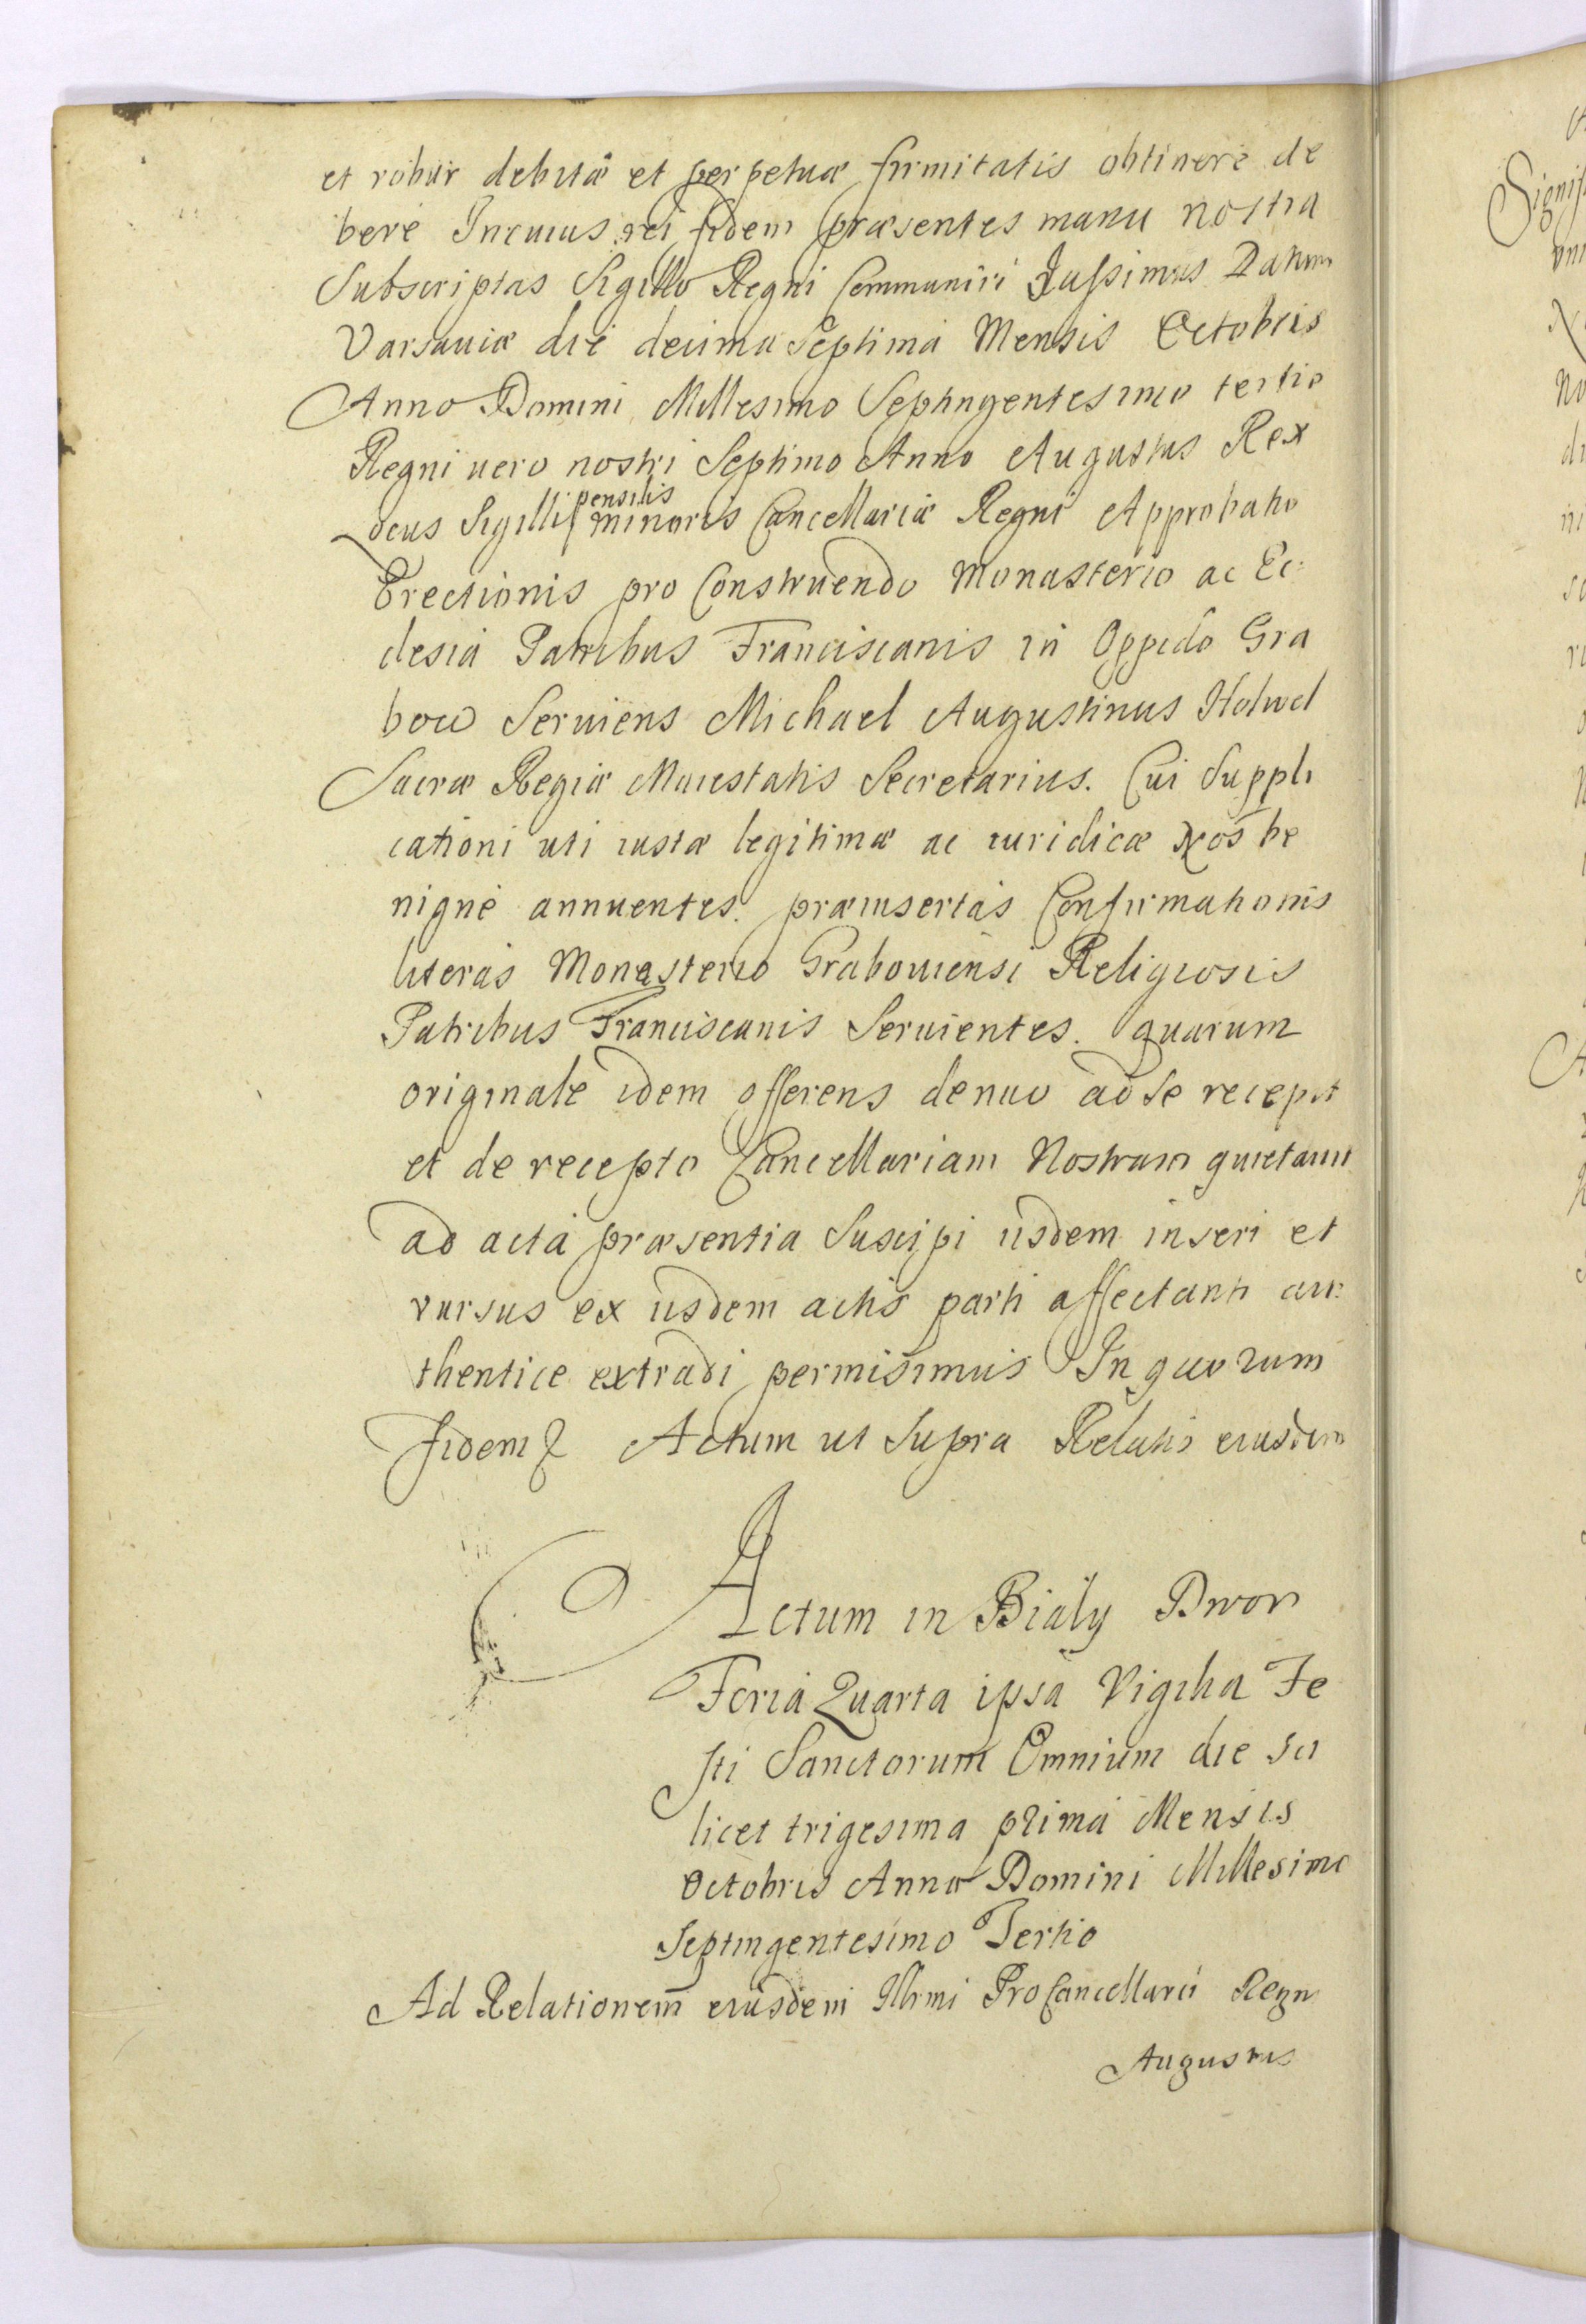 et robur debitæ et perpetuæ firmitatis obtinere de
bere Incuius rei fidem præsentes manu nostra
Subscriptas Sigillo Regni Communiri Jussimus Datum
Varsauiæ die decima Septima Mensis Octobris
Anno Domini Millesimo Septingentesimo tertio
Regni uero nostri Septimo Anno Augustus Rex
Locus Sigilli pensilis minoris Cancellariæ Regni Approbatio
Erectionis pro Construendo Monasterio ac Ec:
clesia Patribus Franciscanis in Oppido Gra
bow Seruiens Michael Augustinus Holwel
Sacræ Regiæ Maiestatis Secretarius. Cui Suppli
cationi uti iustæ legitimæ ac iuridicæ Nos be
nigne annuentes. præinsertas Confirmationis
literas Monasterio Grabouiensi Religiosis
Patribus Franciscanis Seruientes. quarum
originale idem offerens denuo ad se recepit
et de recepto Cancellariam Nostram quietauit
ad acta præsentia Suscipi iisdem inseri et
rursus ex iisdem actis parti affectanti au:
thentice extradi permisimus In quorum
fidem Actum ut Supra Relatio eiusdem
Actum in Bialy Dwor
Feria Quarta ipsa Vigilia Fe
sti Sanctorum Omnium die sci
licet trigesima prima Mensis
Octobris Anno Domini Millesimo
Septingentesimo Tertio
Ad Relationem eiusdem Illrmi ProCancellarii Regni
Augustus